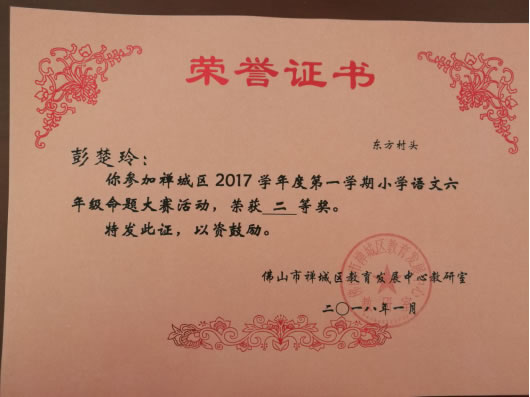 荣誉证书
东方村头
彭楚玲：
你参加禅城区2017学年度第一学期小学语文六
年级命题大赛活动，荣获 二 等奖。
特发此证，以资鼓励。
佛山市禅城区教育发展中心教研室
二〇一八年一月